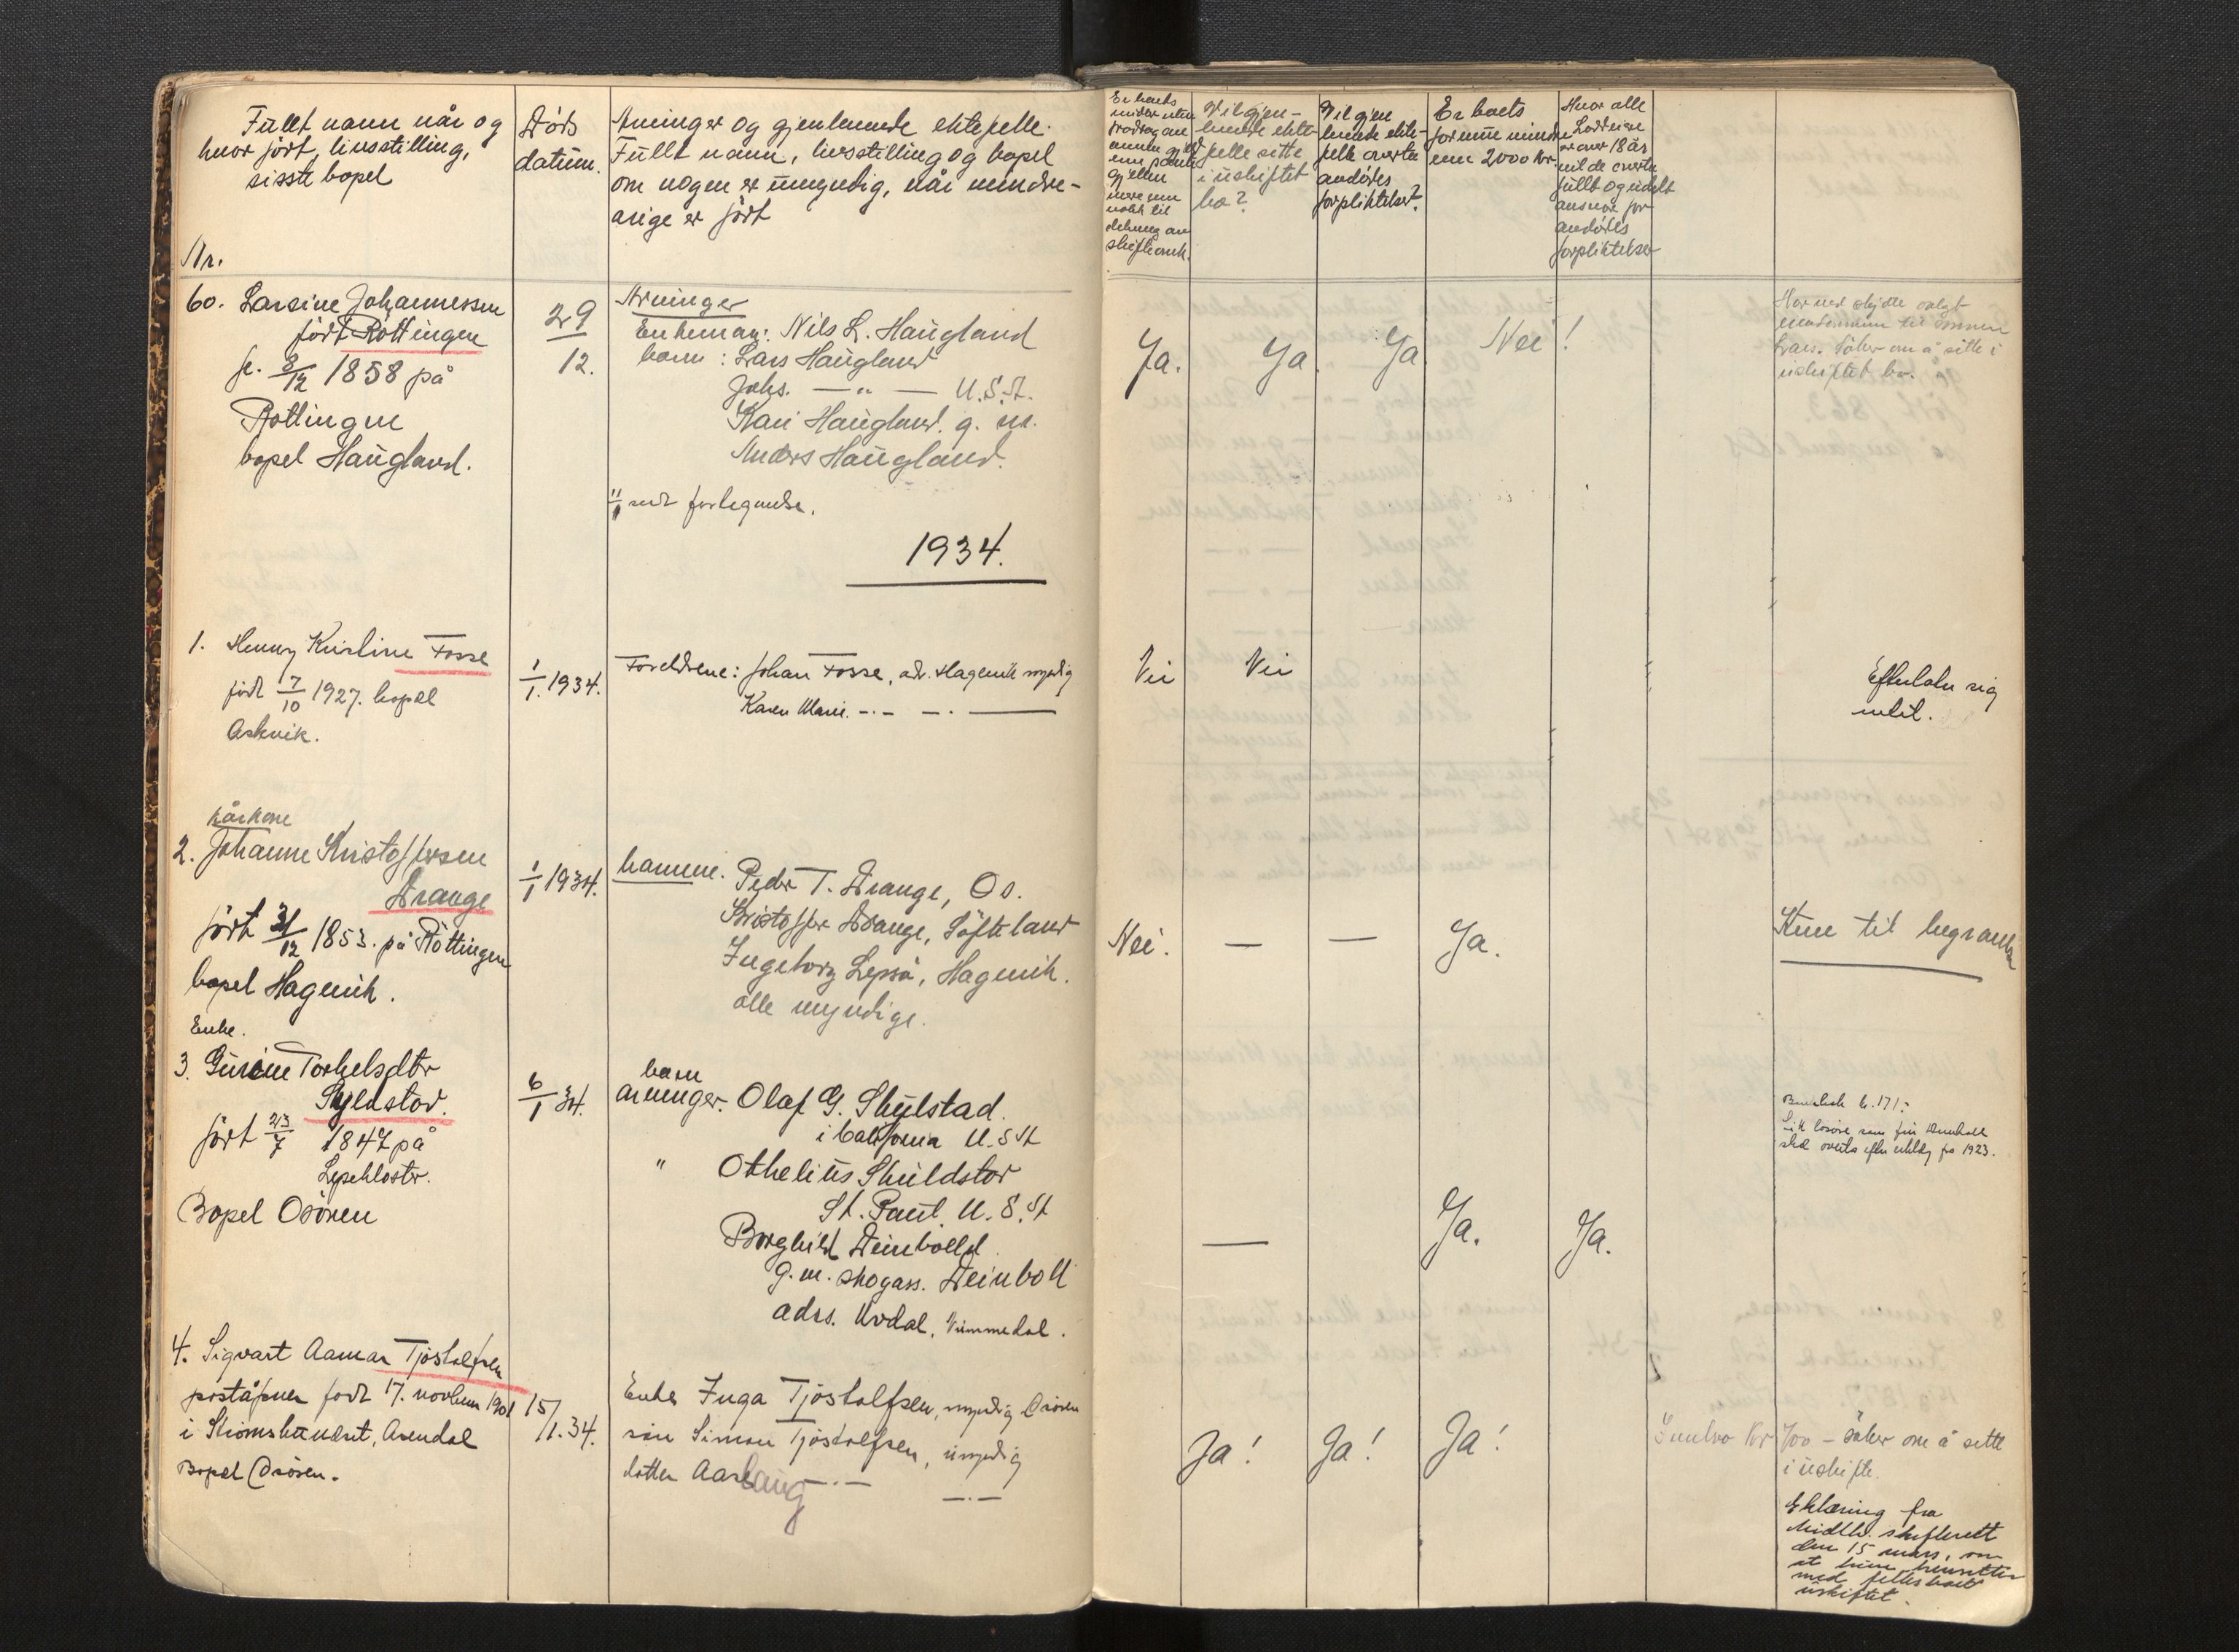 Fullt navn når og
hvor født, livsstilling,
sisste bopel
Nr.
Døds
datum.
Arvinger og gjenlevende ektefelle.
Fullt navn, livsstilling og bopel
om nogen er umyndig, når mindre-
årige er født
Er boets
midler uten
fradrag av
annen gjeld
enn pante
gjelden
mere enn
nokk til
dekning av
skifteomk.
Vil gjen-
levende ekte-
felle sitte
i uskiftet
bo?
Vil gjen
levende ekte-
felle overta
avdødes
forpliktelser?
Er boets
formue mindre
enn 2000 kr.
Hvor alle
Loddeiere
er over 18 år
vil de overta
fullt og udelt
ansvar for
avdødes
forpliktelser
60. Larsine Johannessen
født Røttingen
f. 3/12 1858 på
Røttingen
bopel Haugland.
29
12.
Arvinger
Enkeman: Nils L. Haugland
barn: Lars Haugland
Johs. — " — U.S.A.
Kari Haugland. g. m.
Anders Haugland.
11/1 sendt forlegendse.
Ja. Ja Ja Nei!
Har ved skjøte solgt
eiendommen til sønnen
Lars. Søker om å sitte i
uskiftet bo.
1934.
1. Henny Kristine Fosse
født 7/10 1927. bopel
Askvik.
1/1. 1934.
Foreldrene: Johan Fosse, adr. Hagevik myndig
Karen Marie. -·- -·
Nei Nei
Efterlater sig
intet.
kårkone
2. Johanne Kristoffersen
Drange
født 31/12 1853. på Røttingen
bopel Hagevik.
Enke.
1/1 1934.
barnene. Peder T. Drange, Os.
Kristoffer Drange, Søfteland
Ingeborg Lepsø, Hagevik.
alle myndige.
Nei. — — Ja.
Kun til begravelse
3. Gurine Torkelsdtr
Skjelstad.
født 23/7 1847 på
Lysekloster.
Bopel Osøren
6/1 34.
barn
arvinger. Olaf G. Skulstad.
i California U.S.A
" Othelius Skuldstad
St. Paul. U.S.A
Borghild Deinboll
g.m. skogass. Deinboll
adrs. Uvdal, Nummedal.
— Ja. Ja.
Bankbok kr. 171:
Litt løsøre som fru Deinboll
skal overta efter utlæg fra 1923.
4. Sigvart Aamar Tjøstolfsen
poståpner født 17. novbem 1901
i Strømsbunæset, Arendal
Bopel Osøren.
15/1. 34.
Enke Inga Tjøstolfsen, myndig Osøren
søn Simon Tjøstolfsen, umyndig
datter Aaslaug -·- -·-
Ja! Ja! Ja!
Innbo kr 700 – søker om å sitte
i uskifte.
Erklæring fra
Midthl. skifterett
den 15 mars, om
at hun hensitter
med fellesboet
uskiftet.